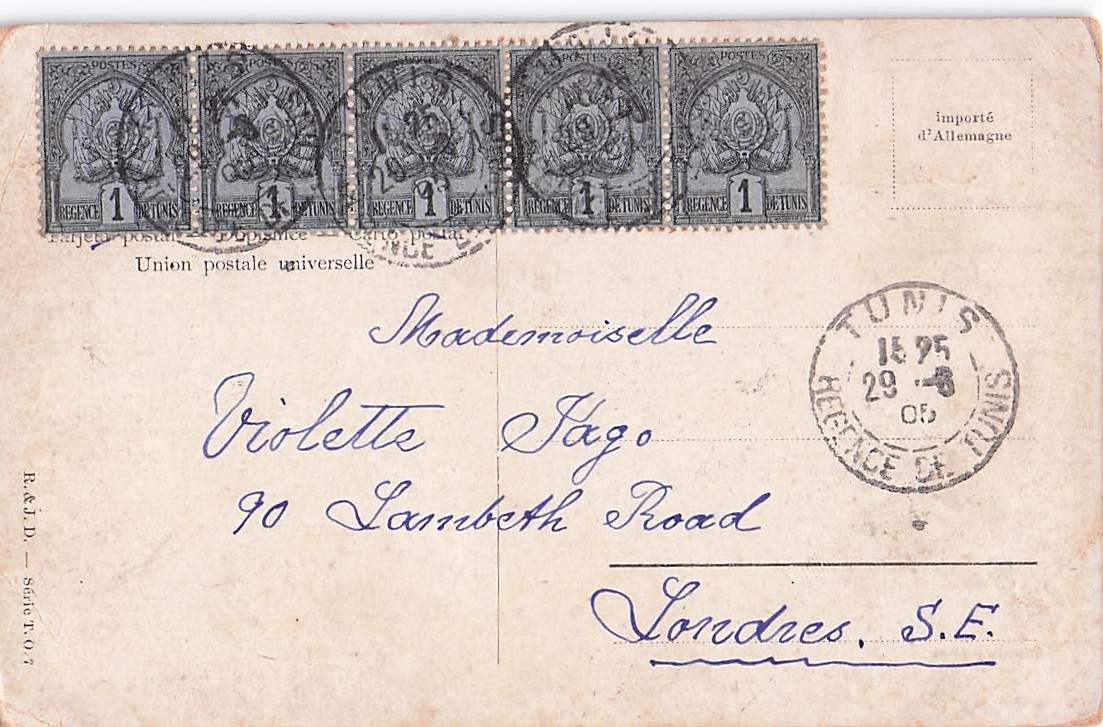 POSTES POSTES POSTES POSTES POSTES
1 1 1 1 1
REGENCE DE TUNIS REGENCE DE TUNIS REGENCE DE TUNIS REGENCE DE TUNIS REGENCE DE TUNIS
importé
d'Allemagne
Tarjeta postal — — Carto postal
Union postale universelle
Mademoiselle
Violette
90 Lambeth Road
Londres. S.E.
TUNIS
29 -8
05
REGENCE DE TUNIS
R. & J. D. — Série T.O.7